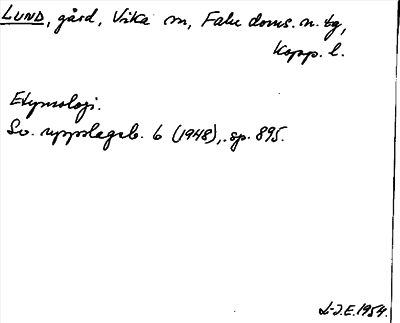 LUND, gård, Vika sn, Falu doms. n. tg,
Kopp. l.
Etymologi.
Sv. uppslagsb. 6 (1948), sp. 895.
L-J.E. 1954.